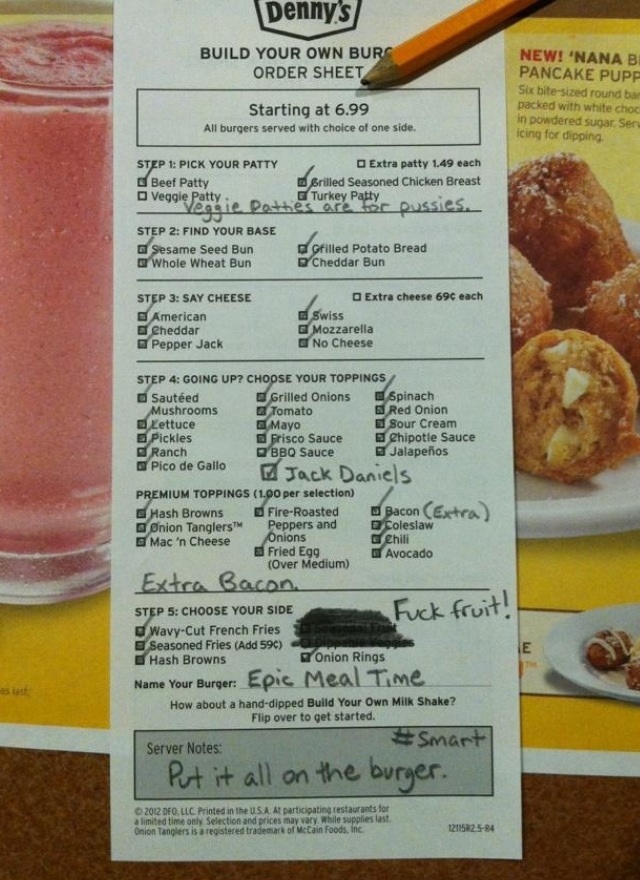 Denny's
BUILD YOUR OWN BURG
ORDER SHEET
Starting at 6.99
All burgers served with choice of one side.
STEP 1: PICK YOUR PATTY
Extra patty 1.49 each
Beef Patty
Grilled Seasoned Chicken Breast
Veggie Patty
Turkey Patty
Veggie Patties are for pussies.
STEP 2: FIND YOUR BASE
Sesame Seed Bun
Grilled Potato Bread
Whole Wheat Bun
Cheddar Bun
STEP 3: SAY CHEESE
Extra cheese 69¢ each
American
Swiss
Cheddar
Mozzarella
Pepper Jack
No Cheese
STEP 4: GOING UP? CHOOSE YOUR TOPPINGS
Sautéed
Mushrooms
Lettuce
Pickles
Ranch
Pico de Gallo
Grilled Onions
Tomato
Mayo
Frisco Sauce
BBQ Sauce
Spinach
Red Onion
Sour Cream
Chipotle Sauce
Jalapeños
Jack Daniels
PREMIUM TOPPINGS (1.00 per selection)
Hash Browns
Onion Tanglers™
Mac 'n Cheese
Fire-Roasted
Peppers and
Onions
Fried Egg
(Over Medium)
Bacon (Extra)
Coleslaw
Chili
Avocado
Extra Bacon.
STEP 5: CHOOSE YOUR SIDE
Fuck fruit!
Wavy-Cut French Fries
Seasoned Fries (Add 59¢)
Hash Browns
Onion Rings
Name Your Burger: Epic Meal Time
How about a hand-dipped Build Your Own Milk Shake?
Flip over to get started.
Server Notes:
#Smart
Put it all on the burger.
© 2012 DFO, LLC. Printed in the U.S.A. At participating restaurants for
a limited time only. Selection and prices may vary. While supplies last.
Onion Tanglers is a registered trademark of McCain Foods, Inc.
12115R2.5-84
NEW! 'NANA B
PANCAKE PUPP
Six bite-sized round ba
packed with white choc
in powdered sugar. Serv
icing for dipping.
E
TM
es last.